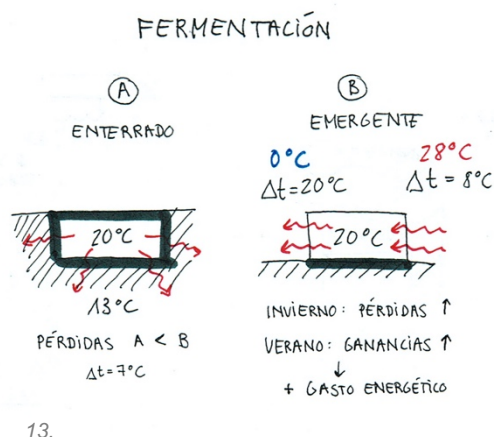 FERMENTACIÓN
A
ENTERRADO
20°C
13°C
PÉRDIDAS A < B
Δt=7°C
B
EMERGENTE
0°C
Δt=20°C
28°C
Δt=8°C
20°C
INVIERNO: PÉRDIDAS ↑
VERANO: GANANCIAS ↑
↓
+ GASTO ENERGÉTICO
13.